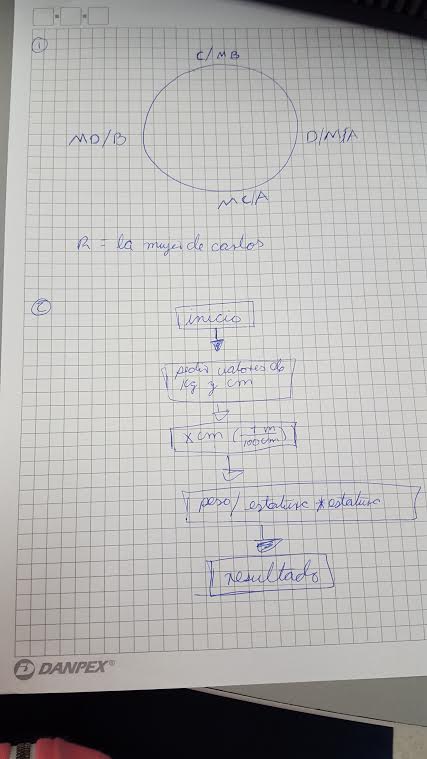 1
C/MB
MD/B
D/MA
MC/A
R = la mujer de carlos
2
inicio
pedir valores de
kg y cm
x cm (1 m / 100 cm)
peso/ estatura * estatura
resultado
DANPEX®